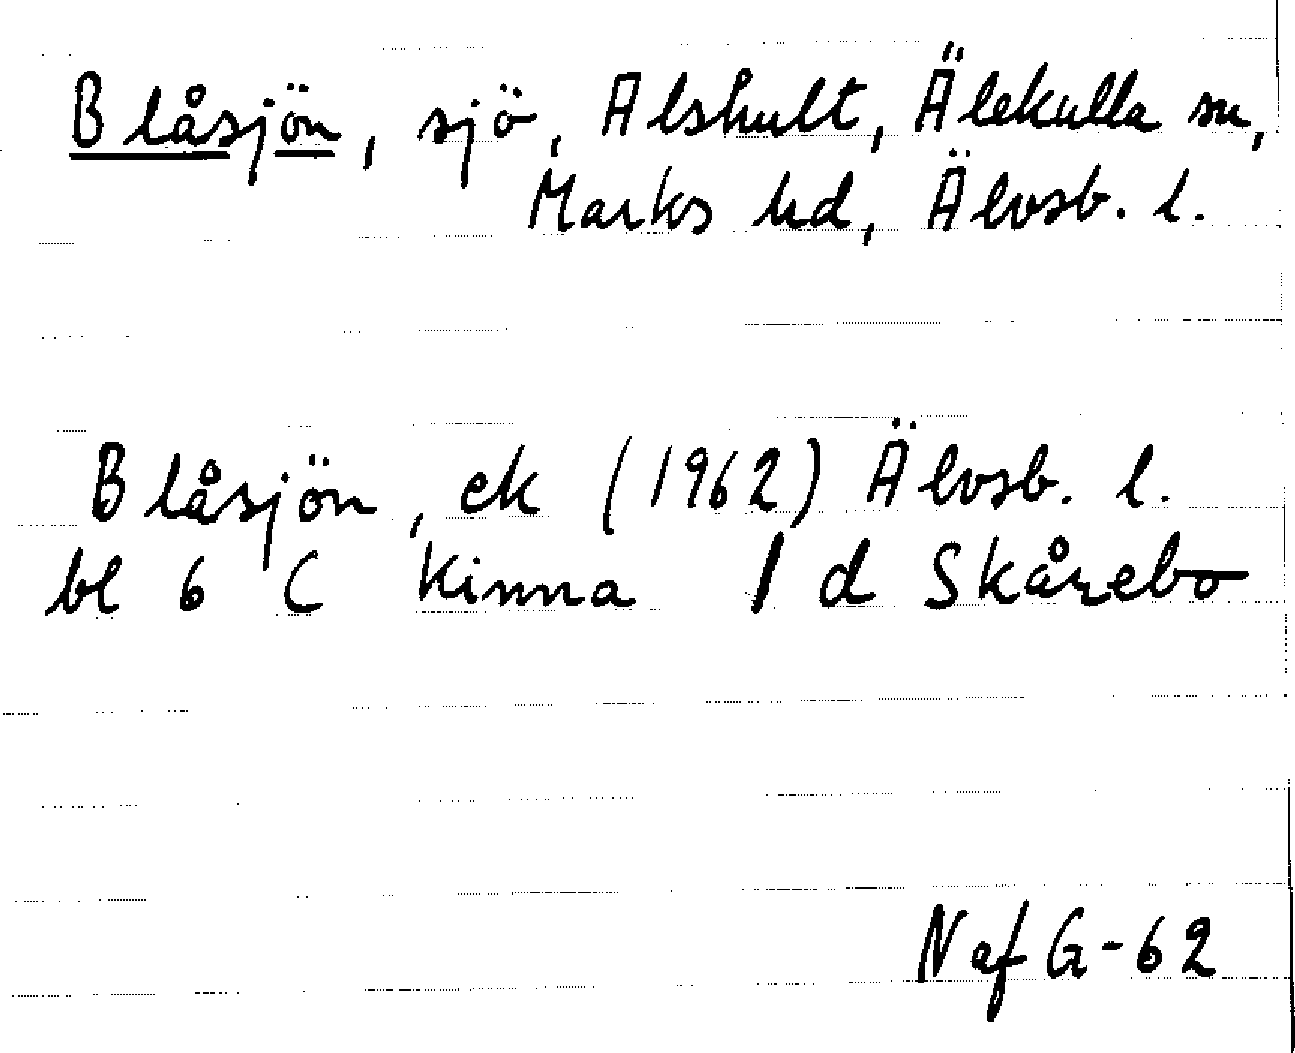 Blåsjön, sjö, Alshult, Älekulla sn,
Marks hd, Älvsb. l.
Blåsjön, ek (1962) Älvsb. l.
bl 6 C Kinna 1 d Skårebo
N af G-62